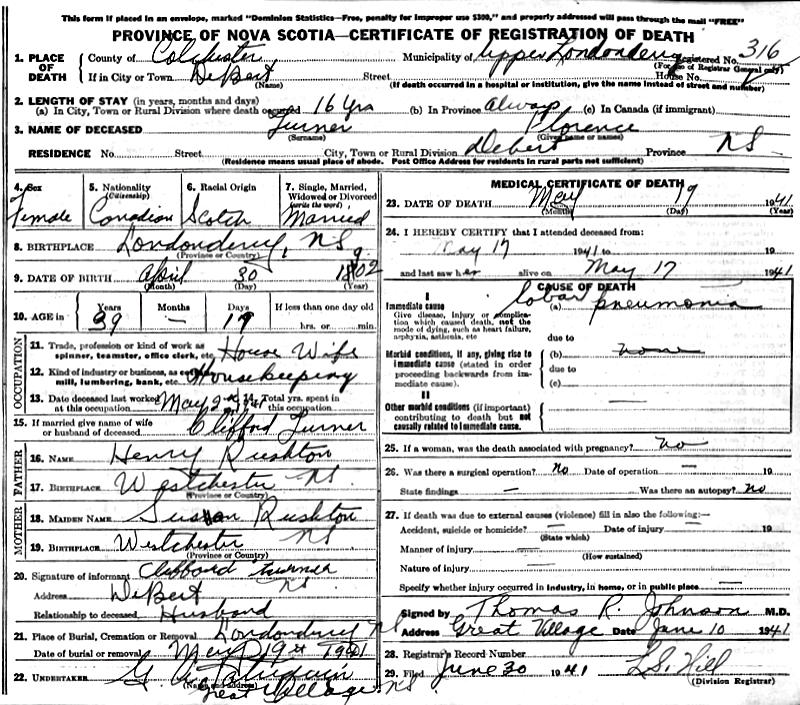 This form if placed in an envelope, marked "Dominion Statistics—Free, penalty for improper use $300," and properly addressed will pass through the mail "FREE"
PROVINCE OF NOVA SCOTIA—CERTIFICATE OF REGISTRATION OF DEATH
1. PLACE OF DEATH
County of Colchester
Municipality of Upper Londonderry
Registered No. 316
(For use of Registrar General only)
If in City or Town DeBert Street House No.
(Name) (If death occurred in a hospital or institution, give the name instead of street and number)
2. LENGTH OF STAY (in years, months and days)
(a) In City, Town or Rural Division where death occured 16 Yrs (b) In Province Always (c) In Canada (if immigrant)
3. NAME OF DECEASED Turner Florence
(Surname) (Given name or names)
RESIDENCE No. Street City, Town or Rural Division Debert Province NS
(Residence means usual place of abode. Post Office Address for residents in rural parts not sufficient)
4. Sex Female
5. Nationality (Citizenship) Canadian
6. Racial Origin Scotch
7. Single, Married, Widowed or Divorced (write the word) Married
8. BIRTHPLACE Londonderry, NS
(Province or Country)
9. DATE OF BIRTH April 30 1902
(Month) (Day) (Year)
10. AGE in Years 39 Months — Days 19 If less than one day old hrs. or min.
OCCUPATION
11. Trade, profession or kind of work as spinner, teamster, office clerk, etc. House Wife
12. Kind of industry or business, as cotton mill, lumbering, bank, etc. Housekeeping
13. Date deceased last worked at this occupation May 2nd 1941
14. Total yrs. spent in this occupation
15. If married give name of wife or husband of deceased Clifford Turner
FATHER
16. NAME Henry Rushton
17. BIRTHPLACE Westchester NS
(Province or Country)
MOTHER
18. MAIDEN NAME Susan Rushton
19. BIRTHPLACE Westchester NS
(Province or Country)
20. Signature of informant Clifford Turner
Address DeBert NS
Relationship to deceased Husband
21. Place of Burial, Cremation or Removal Londonderry NS
Date of burial or removal May 19th 1941
22. UNDERTAKER G.
(Name and address) Great Village NS.
MEDICAL CERTIFICATE OF DEATH
23. DATE OF DEATH May 19 1941
(Month) (Day) (Year)
24. I HEREBY CERTIFY that I attended deceased from:
May 17 1941 to 19
and last saw her alive on May 17 1941
CAUSE OF DEATH
I
Immediate cause (a) lobar pneumonia
Give disease, injury or complication which caused death, not the mode of dying, such as heart failure, asphyxia, asthenia, etc
due to
Morbid conditions, if any, giving rise to immediate cause (stated in order proceeding backwards from immediate cause).
(b) none
due to
(c)
II
Other morbid conditions (if important) contributing to death but not causally related to immediate cause. —
25. If a woman, was the death associated with pregnancy? no
26. Was there a surgical operation? No Date of operation — 19
State findings — Was there an autopsy? No
27. If death was due to external causes (violence) fill in also the following:—
Accident, suicide or homicide? — Date of injury — 19
(State which)
Manner of injury —
(How sustained)
Nature of injury —
Specify whether injury occurred in industry, in home, or in public place —
Signed by Thomas R. Johnson M.D.
Address Great Village Date June 10 1941
28. Registrar's Record Number
29. Filed June 30 1941 L.S. Hill
(Division Registrar)